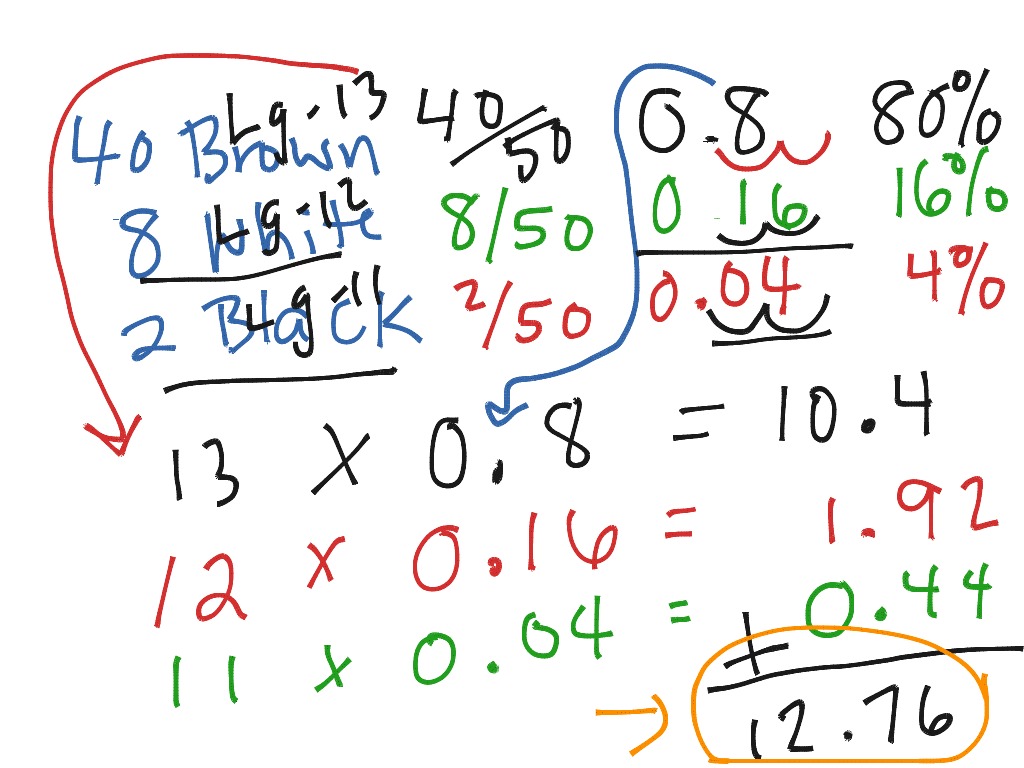 40 Brown Lg-13 40/50 0.8 80%
8 White Lg-12 8/50 0.16 16%
2 Black Lg-11 2/50 0.04 4%
13 x 0.8 = 10.4
12 x 0.16 = 1.92
11 x 0.04 = + 0.44
12.76